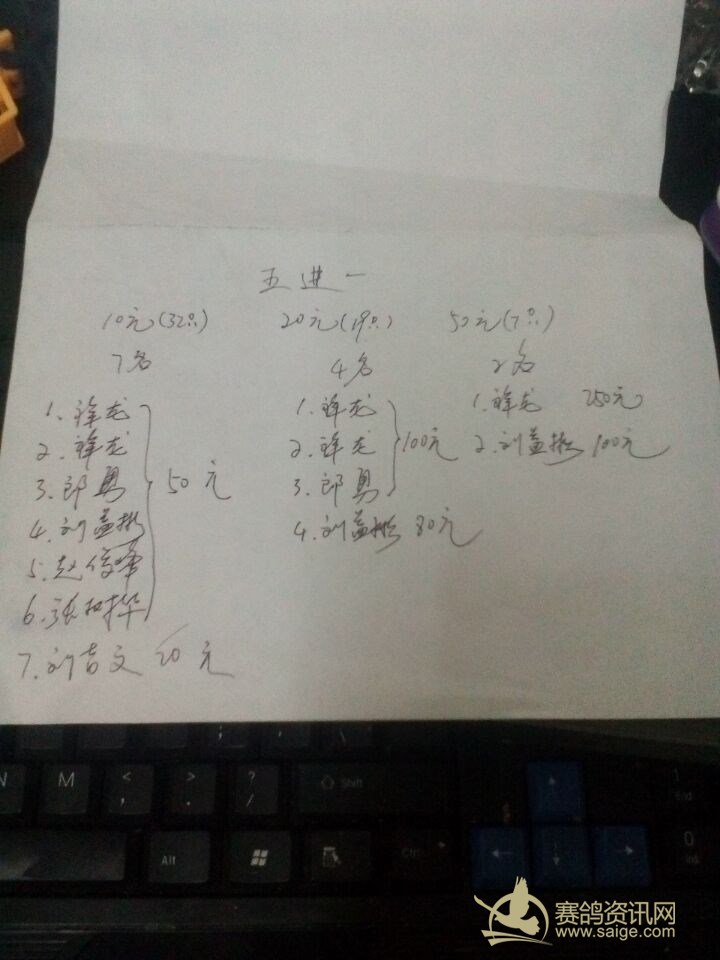 五进一
10元(32只) 20元(19只) 50元(7只)
7名 4名 2名
1. 锋龙
2. 锋龙
3. 郎勇
4. 刘益
5. 赵俊峰
6. 张
50元
7. 刘吉文 20元
1. 锋龙
2. 锋龙
3. 郎勇
100元
4. 刘益 80元
1. 锋龙 250元
2. 刘益 100元
N M < , > . ? / Shift 1 End
Alt Ctrl 0 Ins
赛鸽资讯网
www.saige.com